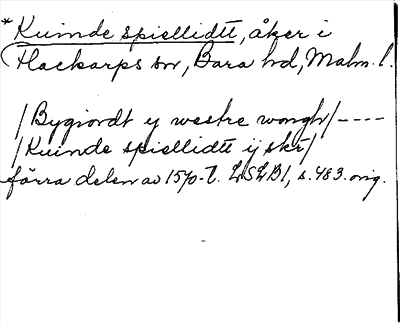 *Kuinde spiellidtt, åker i
Flackarps sn, Bara hd, Malm. l.
/Bygiordt y westre wongh/----
/Kuinde spiellidtt ij skr/
förra delen av 1570-t. LSLB1, s. 483. orig.